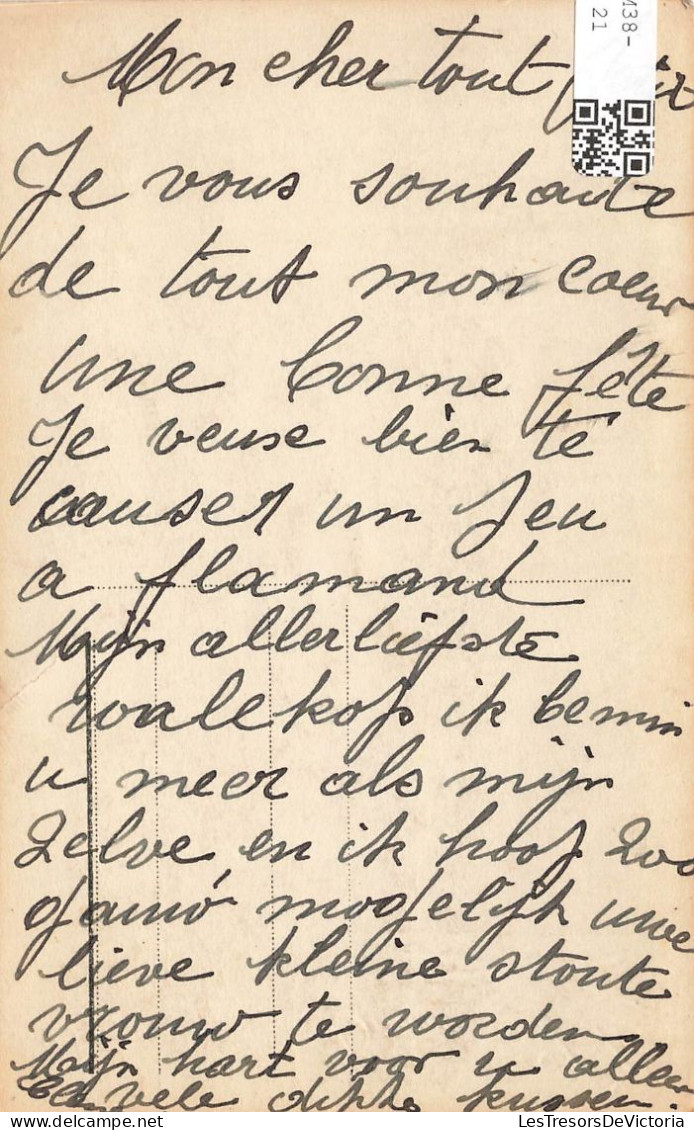 M38-
21
Mon cher tout
Je vous souhaite
de tout mon coeur
une bonne fête
Je veuse bien te
causer un Jeu
a flamand
Mijn allerliefste
walekop ik bemin
u meer als mijn
Zelve en ik hoop zoo
gauw mogelijk uwe
lieve kleine stoute
vrouw te worden
Mijn hart voor u alleen
vele dikke kussen.
LesTresorsDeVictoria